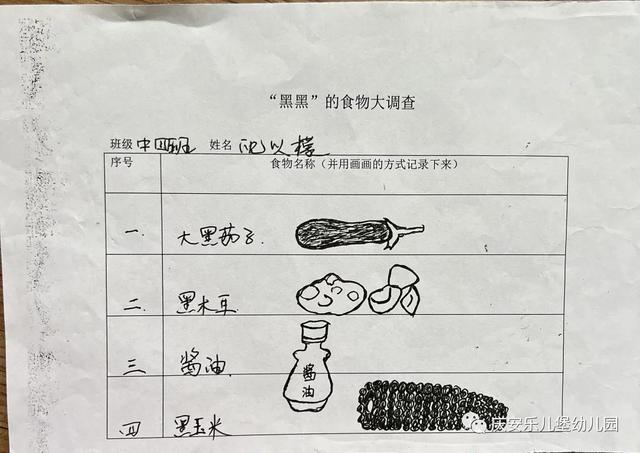 “黑黑”的食物大调查
班级 中四班 姓名 沈以檬
序号 食物名称（并用画画的方式记录下来）
一 大黑茄子
二 黑木耳
三 酱油
酱油
四 黑玉米
庆安乐儿堡幼儿园